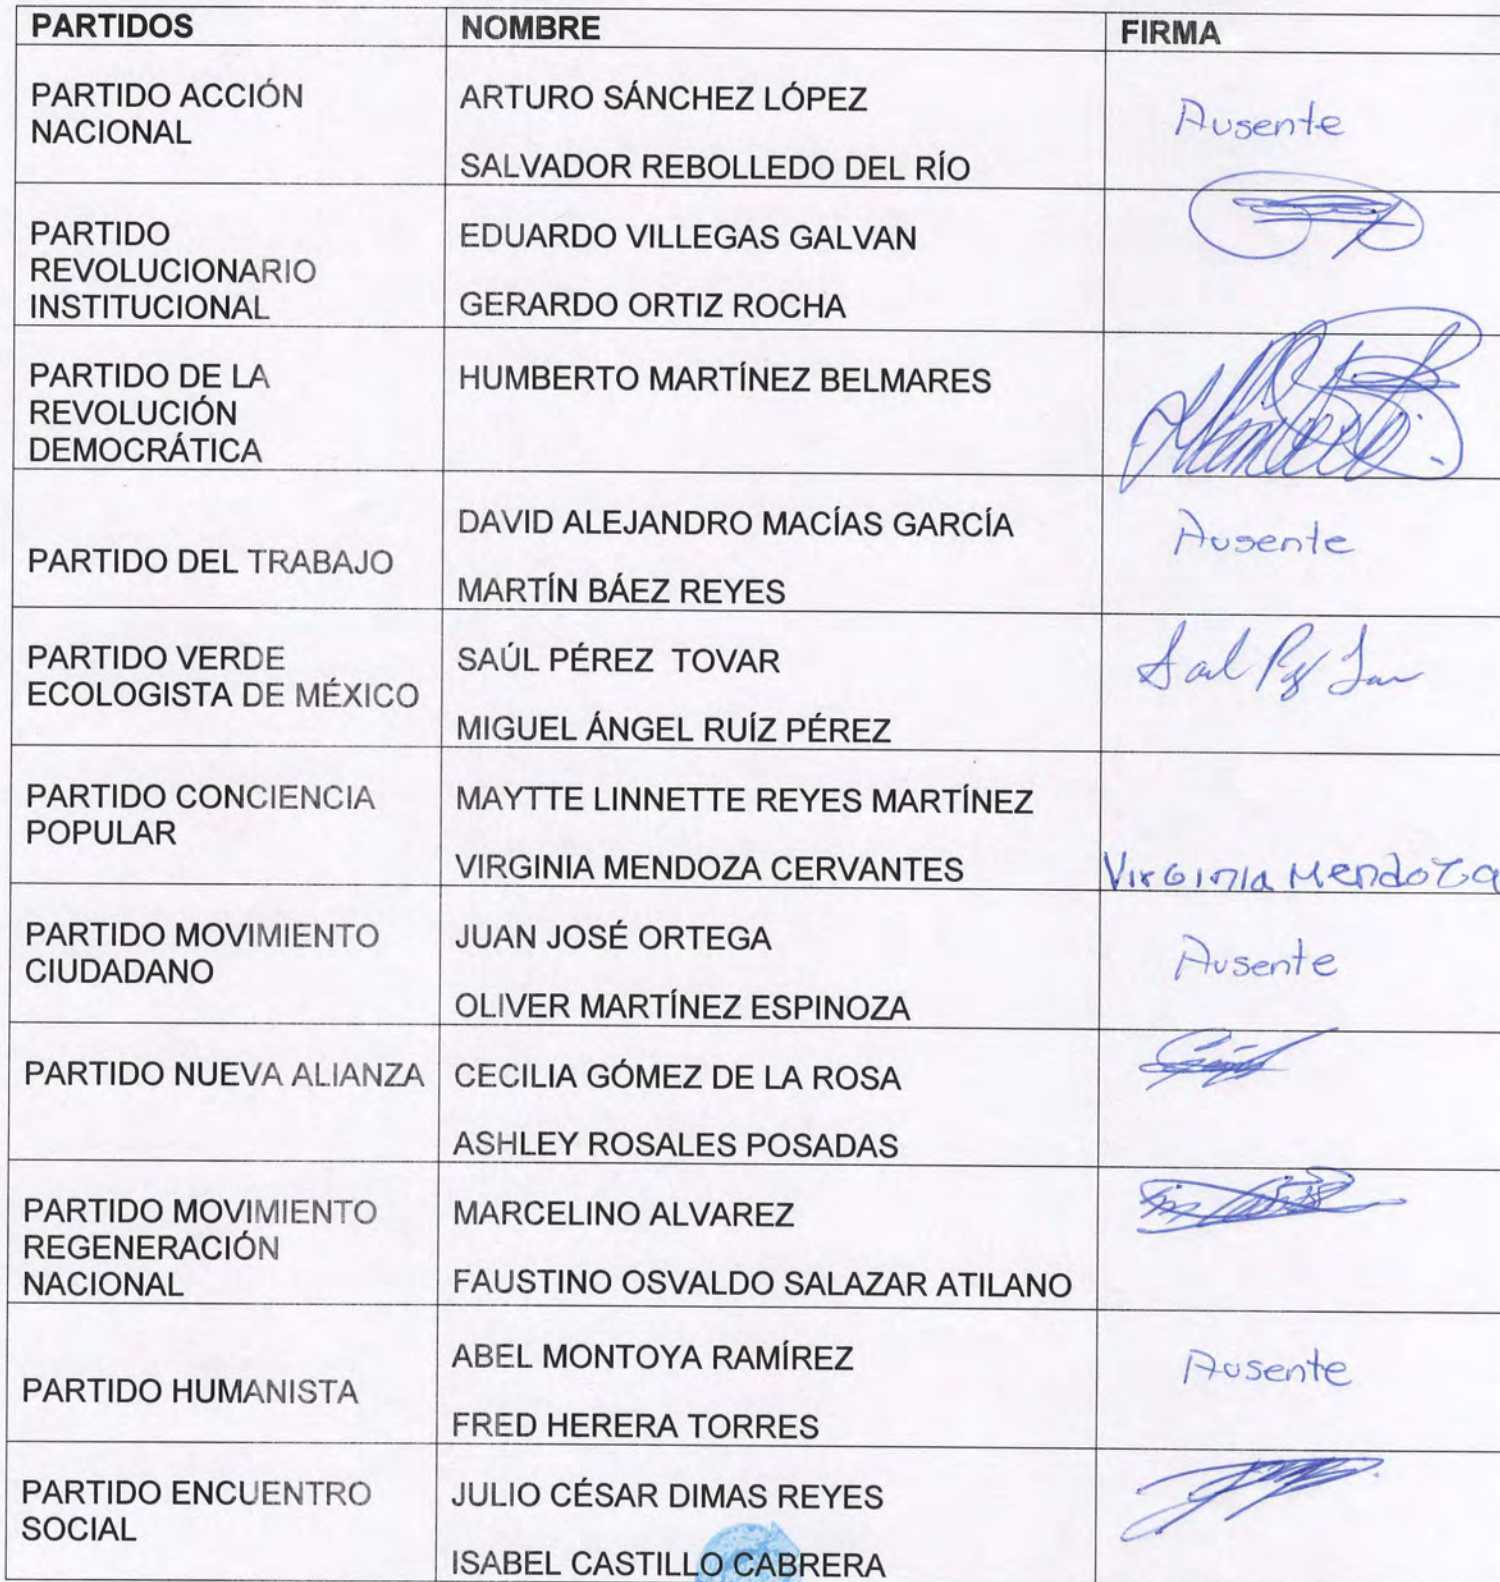 PARTIDOS NOMBRE FIRMA
PARTIDO ACCIÓN
NACIONAL
ARTURO SÁNCHEZ LÓPEZ
SALVADOR REBOLLEDO DEL RÍO
Ausente
PARTIDO
REVOLUCIONARIO
INSTITUCIONAL
EDUARDO VILLEGAS GALVAN
GERARDO ORTIZ ROCHA
PARTIDO DE LA
REVOLUCIÓN
DEMOCRÁTICA
HUMBERTO MARTÍNEZ BELMARES
PARTIDO DEL TRABAJO
DAVID ALEJANDRO MACÍAS GARCÍA
MARTÍN BÁEZ REYES
Ausente
PARTIDO VERDE
ECOLOGISTA DE MÉXICO
SAÚL PÉREZ TOVAR
MIGUEL ÁNGEL RUÍZ PÉREZ
PARTIDO CONCIENCIA
POPULAR
MAYTTE LINNETTE REYES MARTÍNEZ
VIRGINIA MENDOZA CERVANTES
Virginia Mendoza
PARTIDO MOVIMIENTO
CIUDADANO
JUAN JOSÉ ORTEGA
OLIVER MARTÍNEZ ESPINOZA
Ausente
PARTIDO NUEVA ALIANZA
CECILIA GÓMEZ DE LA ROSA
ASHLEY ROSALES POSADAS
PARTIDO MOVIMIENTO
REGENERACIÓN
NACIONAL
MARCELINO ALVAREZ
FAUSTINO OSVALDO SALAZAR ATILANO
PARTIDO HUMANISTA
ABEL MONTOYA RAMÍREZ
FRED HERERA TORRES
Ausente
PARTIDO ENCUENTRO
SOCIAL
JULIO CÉSAR DIMAS REYES
ISABEL CASTILLO CABRERA